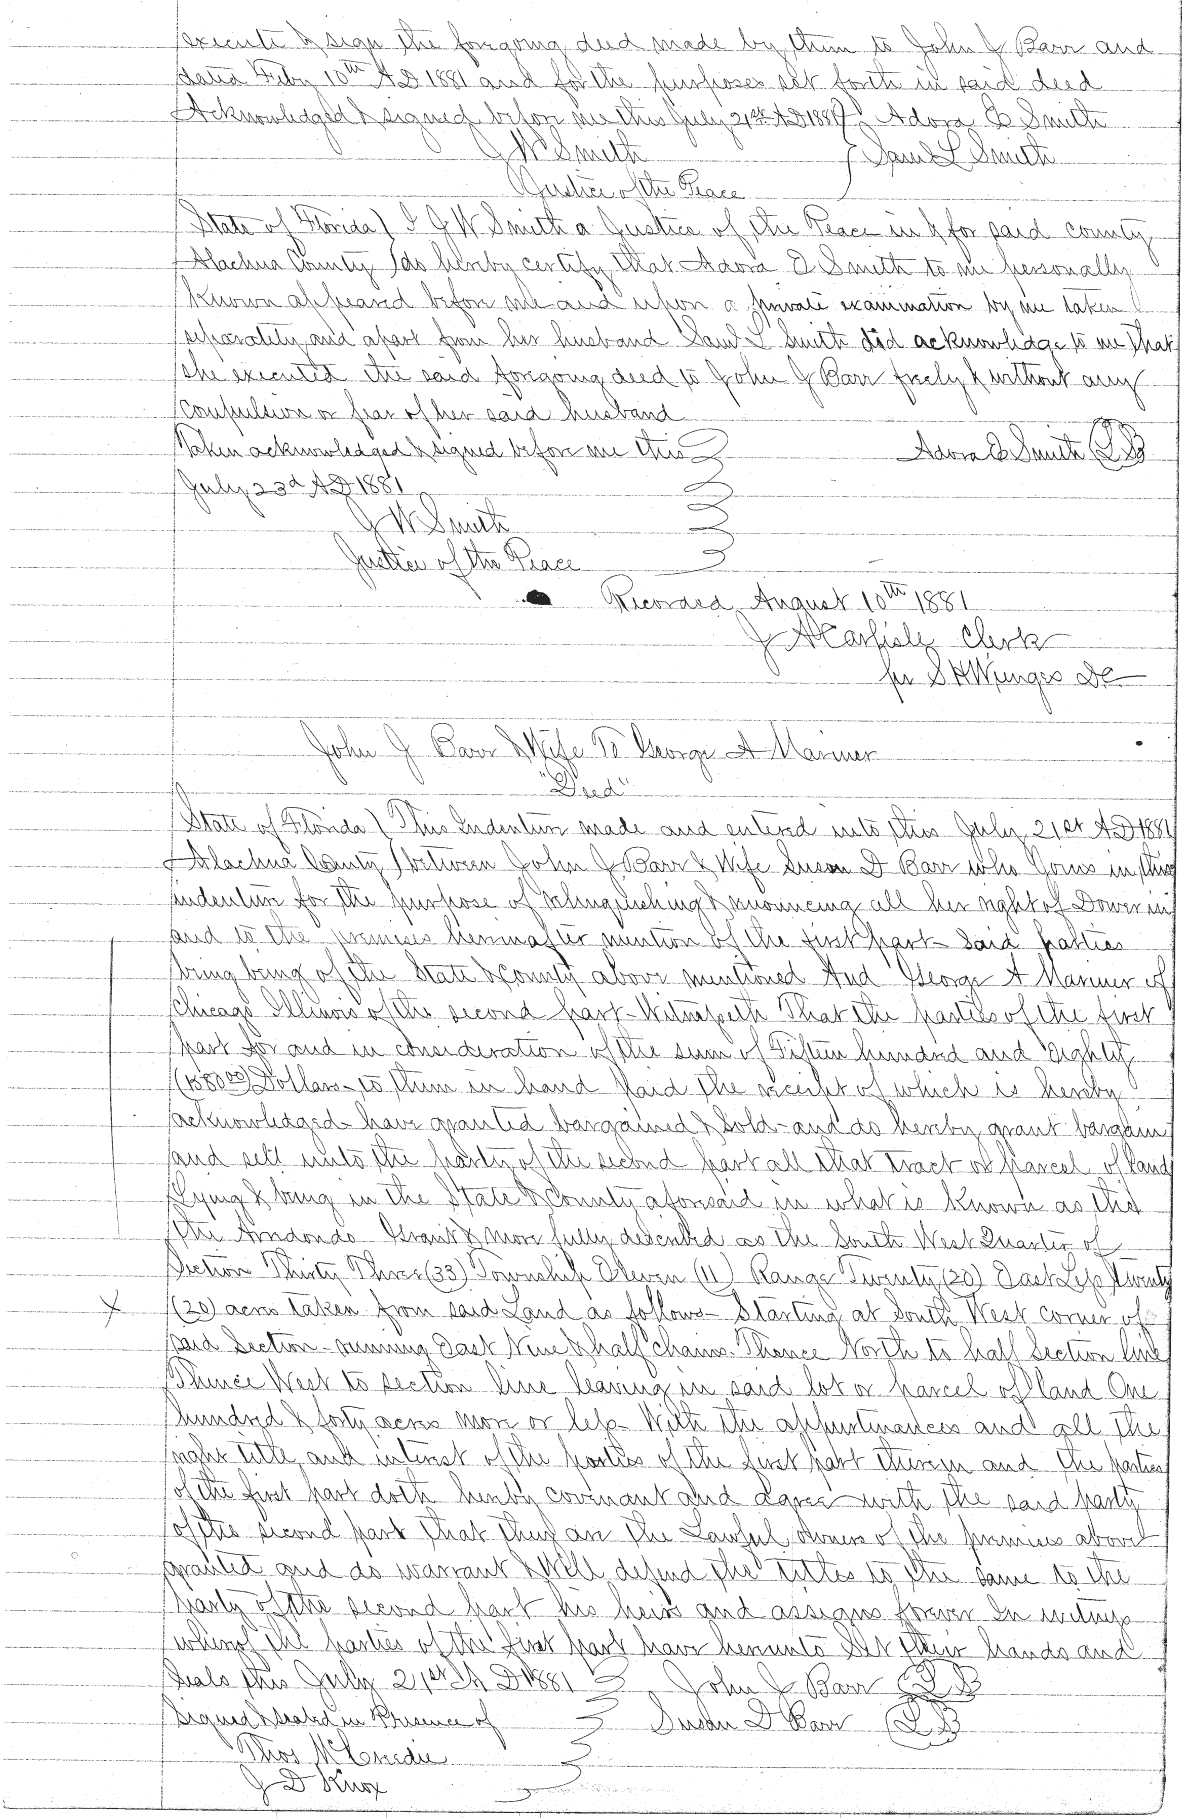 execute & sign the foregoing deed made by them to John J Barr and
dated Feby 10th AD 1881 and for the purposes set forth in said deed
Acknowledged & signed before me this July 21st AD 1881 } Adora E Smith
J W Smith } Saml L Smith
Justice of the Peace
State of Florida ) I J W Smith a Justice of the Peace in & for said county
Alachua County ) do hereby certify that Adora E Smith to me personally
known appeared before me and upon a private examination by me taken
separately and apart from her husband Saml L Smith did acknowledge to me that
she executed the said foregoing deed to John J Barr freely & without any
compulsion or fear of her said husband
Taken acknowledged & signed before me this Adora E Smith (LS)
July 23d AD 1881
J W Smith
Justice of the Peace
Recorded August 10th 1881
J A Carlisle Clerk
per S H Wienges DC
John J Barr & Wife To George A Mariner
"Deed"
State of Florida ) This Indenture made and entered into this July 21st AD 1881
Alachua County ) between John J Barr & Wife Susan D Barr who Joins in this
indenture for the purpose of relinquishing & renouncing all her right of Dower in
and to the premises hereinafter mention of the first part – Said parties
being being of the State & County above mentioned And George A Mariner of
Chicago Illinois of the second part – Witnesseth That the parties of the first
part for and in consideration of the sum of Fifteen hundred and Eighty
(1580 00) Dollars – to them in hand paid the receipt of which is hereby
acknowledged – have granted bargained & Sold – and do hereby grant bargain
and sell unto the party of the second part all that tract or parcel of land
Lying & being in the State & County aforesaid in what is known as the
the Arredondo Grant & more fully described as the South West Quarter of
Section Thirty Three (33) Township Eleven (11) Range Twenty (20) East Less twenty
X (20) acres taken from said Land as follows – Starting at South West corner of
said Section – running East Nine & half chains. Thence North to half Section line
Thence West to section line leaving in said lot or parcel of land One
hundred & forty acres more or less – With the appurtenances and all the
right title and interest of the parties of the first part therein and the parties
of the first part doth hereby covenant and agree with the said party
of the second part that they are the Lawful owners of the premises above
granted and do warrant & Will defend the titles to the same to the
party of the second part his heirs and assigns forever In witness
whereof the parties of the first part have hereunto Set their hands and
Seals this July 21st A D 1881 John J Barr (LS)
Signed & sealed in Presence of Susan D Barr (LS)
Thos McCredie
J D Knox